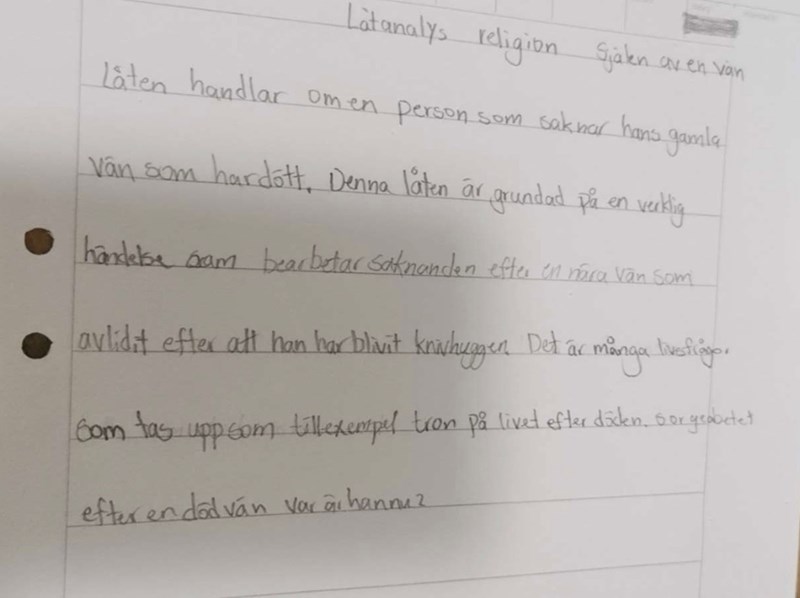 Låtanalys religion Själen av en vän
Låten handlar om en person som saknar hans gamla
vän som har dött. Denna låten är grundad på en verklig
händelse som bearbetar saknanden efter en nära vän som
avlidit efter att han har blivit knivhuggen. Det är många livesfrågor
som tas upp som till exempel tron på livet efter döden. sorgearbetet
efter en död vän var är han nu?